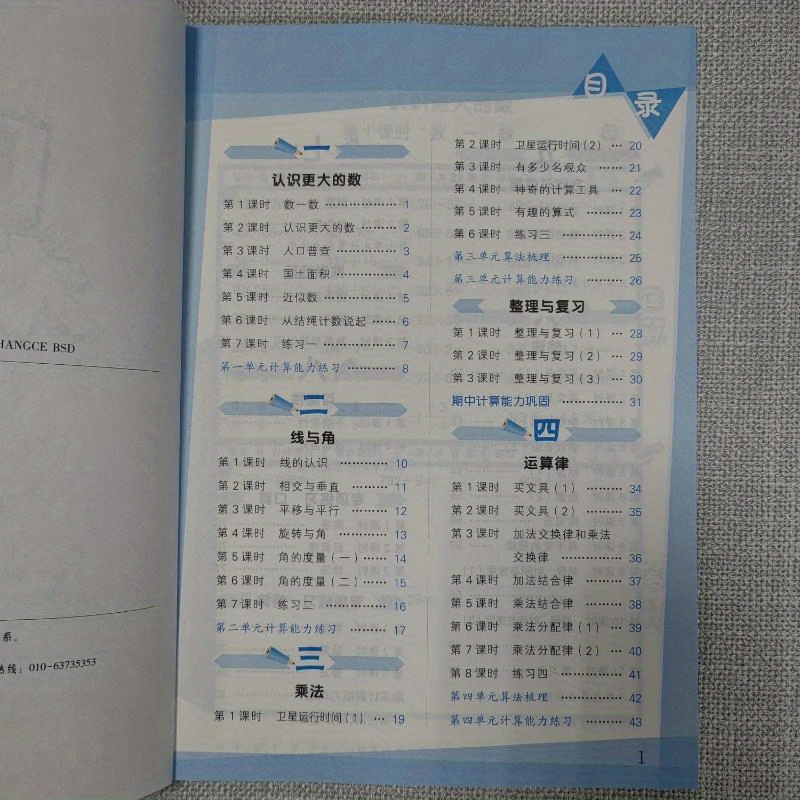 HANGCE BSD
系。
热线：010-63735353
目录
一
认识更大的数
第1课时 数一数 ……………… 1
第2课时 认识更大的数 ……… 2
第3课时 人口普查 …………… 3
第4课时 国土面积 …………… 4
第5课时 近似数 ……………… 5
第6课时 从结绳计数说起 …… 6
第7课时 练习一 ……………… 7
第一单元计算能力练习 ………… 8
二
线与角
第1课时 线的认识 ………… 10
第2课时 相交与垂直 ……… 11
第3课时 平移与平行 ……… 12
第4课时 旋转与角 ………… 13
第5课时 角的度量（一） …… 14
第6课时 角的度量（二） …… 15
第7课时 练习二 …………… 16
第二单元计算能力练习 ……… 17
三
乘法
第1课时 卫星运行时间（1） … 19
第2课时 卫星运行时间（2） … 20
第3课时 有多少名观众 …… 21
第4课时 神奇的计算工具 … 22
第5课时 有趣的算式 ……… 23
第6课时 练习三 …………… 24
第三单元算法梳理 …………… 25
第三单元计算能力练习 ……… 26
整理与复习
第1课时 整理与复习（1） … 28
第2课时 整理与复习（2） … 29
第3课时 整理与复习（3） … 30
期中计算能力巩固 …………… 31
四
运算律
第1课时 买文具（1） ……… 34
第2课时 买文具（2） ……… 35
第3课时 加法交换律和乘法
交换律 …………… 36
第4课时 加法结合律 ……… 37
第5课时 乘法结合律 ……… 38
第6课时 乘法分配律（1） … 39
第7课时 乘法分配律（2） … 40
第8课时 练习四 …………… 41
第四单元算法梳理 …………… 42
第四单元计算能力练习 ……… 43
1